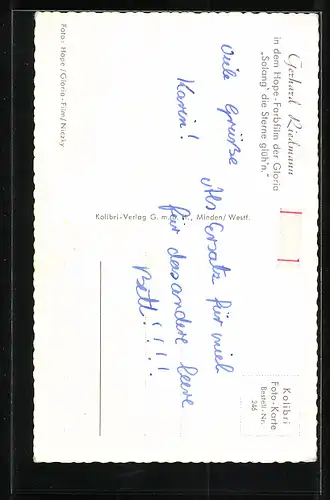 Gerhard Riedmann
in dem Hope-Farbfilm der Gloria
„Solang' die Sterne glüh'n"
Foto: Hope/Gloria-Film/Niczky
Kolibri-Verlag G. m. , Minden/Westf.
Kolibri
Foto-Karte
Bestell-Nr.
246
Viele Grüße
Karin!
Als Ersatz für mich
für das andere leere
Bett!!!!